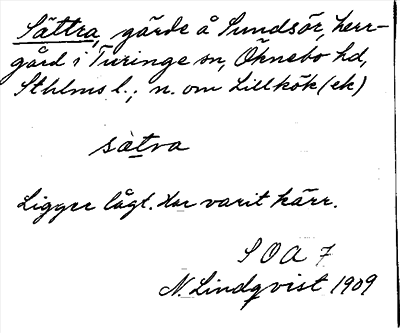 Sättra, gärde å Sundsör, herr-
gård i Turinge sn, Öknebo hd,
Sthlms l.; n. om Lillkök (ek)
sàtra
Ligger lågt. Har varit kärr.
SOA 7
N. Lindqvist 1909